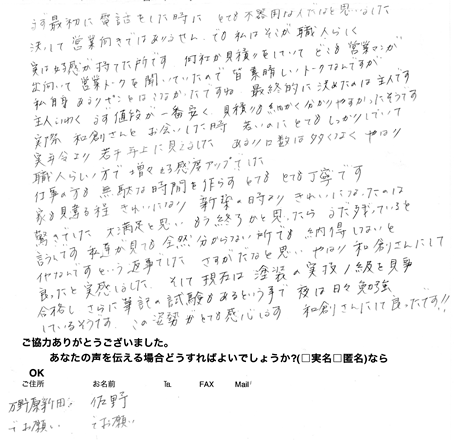 まず最初に電話をした時に とても不器用な人だなと思いました
決して営業向きではありません。でも私はそこが職人らしく
実は好感が持てた所です 何社か見積りをしていて どこも営業マンが
出向いて営業トークを聞いていたので 皆素晴しいトークなんですが
私自身あまりピンとはこなかったですね 最終的に決めたのは主人です
主人いわく まず値段が一番安く、見積りも細かく分かりやすかったそうです
実際 和創さんとお会いした時 若いのにとてもしっかりしていて
実年令より若干年上に見えました あまり口数は多くなく やはり
職人らしい方で増々好感度アップでした
仕事の方も無駄な時間を作らず とてもとても丁寧です
家も見違る程 きれいになり 新築の時より きれいになったのは
驚きでした 大満足と思い もう終了かと思ったら まだ残っていると
言うんです 私達が見ても全然分からない所でも 納得しないと
イヤなんですという返事でした さすがだなと思い やはり和創さんにして
良ったと実感しました。そして現在は 塗装の実技1級を見事
合格し さらに筆記の試験もあるという事で 夜は日々勉強
しているそうです。この姿勢がとても感心します 和創さんにして良ったです!!
ご協力ありがとうございました。
あなたの声を伝える場合どうすればよいでしょうか?(□実名□匿名)なら
OK
ご住所 お名前 ℡ FAX Mail
万野原新田 佐野
でお願い でお願い